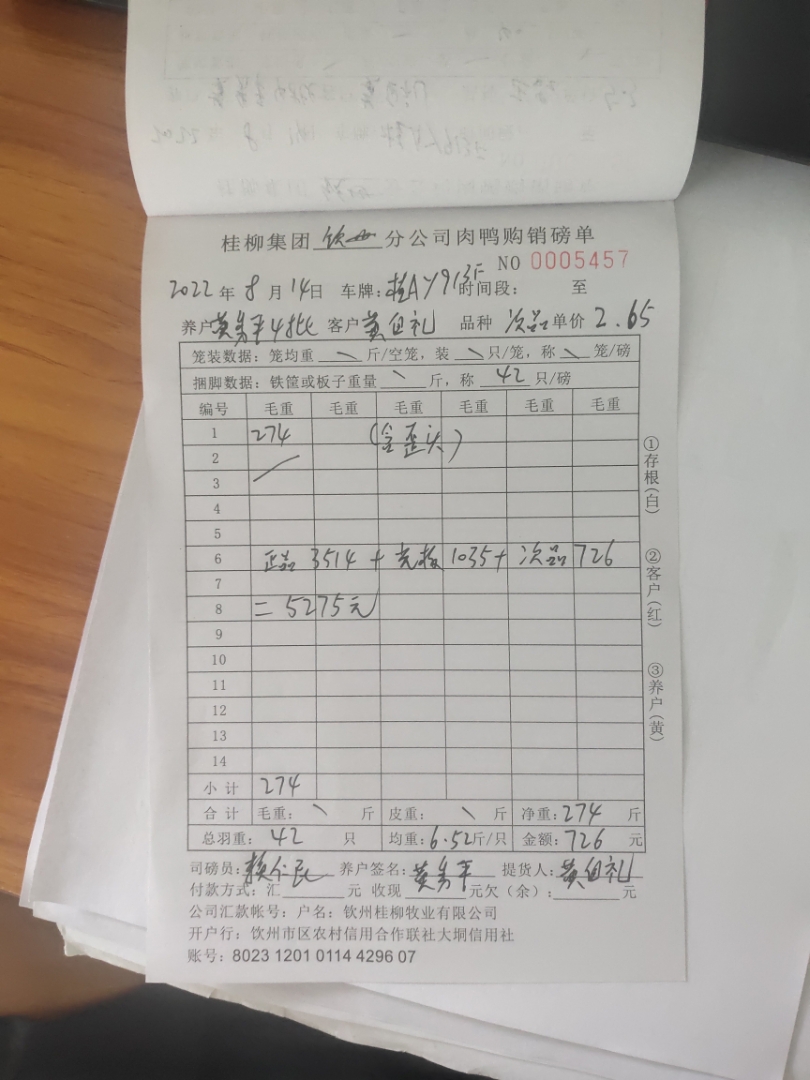 桂柳集团 钦州 分公司肉鸭购销磅单
NO 0005457
2022年 8月 14日 车牌: 桂AY913F 时间段: 至
养户 4批 客户 黄伯礼 品种 次品 单价 2.65
笼装数据: 笼均重 \ 斤/空笼, 装 \ 只/笼, 称 \ 笼/磅
捆脚数据: 铁筐或板子重量 \ 斤, 称 42 只/磅
编号 毛重 毛重 毛重 毛重 毛重 毛重
1 274 (含歪头)
2
3
4
5
6 正品 3514 + 光板 1035 + 次品 726
7
8 = 5275元
9
10
11
12
13
14
小计 274
合计 毛重: \ 斤 皮重: \ 斤 净重: 274 斤
总羽重: 42 只 均重: 6.52斤/只 金额: 726 元
司磅员: 养户签名: 提货人: 黄伯礼
付款方式: 汇 元 收现 元欠(余): 元
公司汇款帐号: 户名: 钦州桂柳牧业有限公司
开户行: 钦州市区农村信用合作联社大垌信用社
账号: 8023 1201 0114 4296 07
①存根(白)
②客户(红)
③养户(黄)